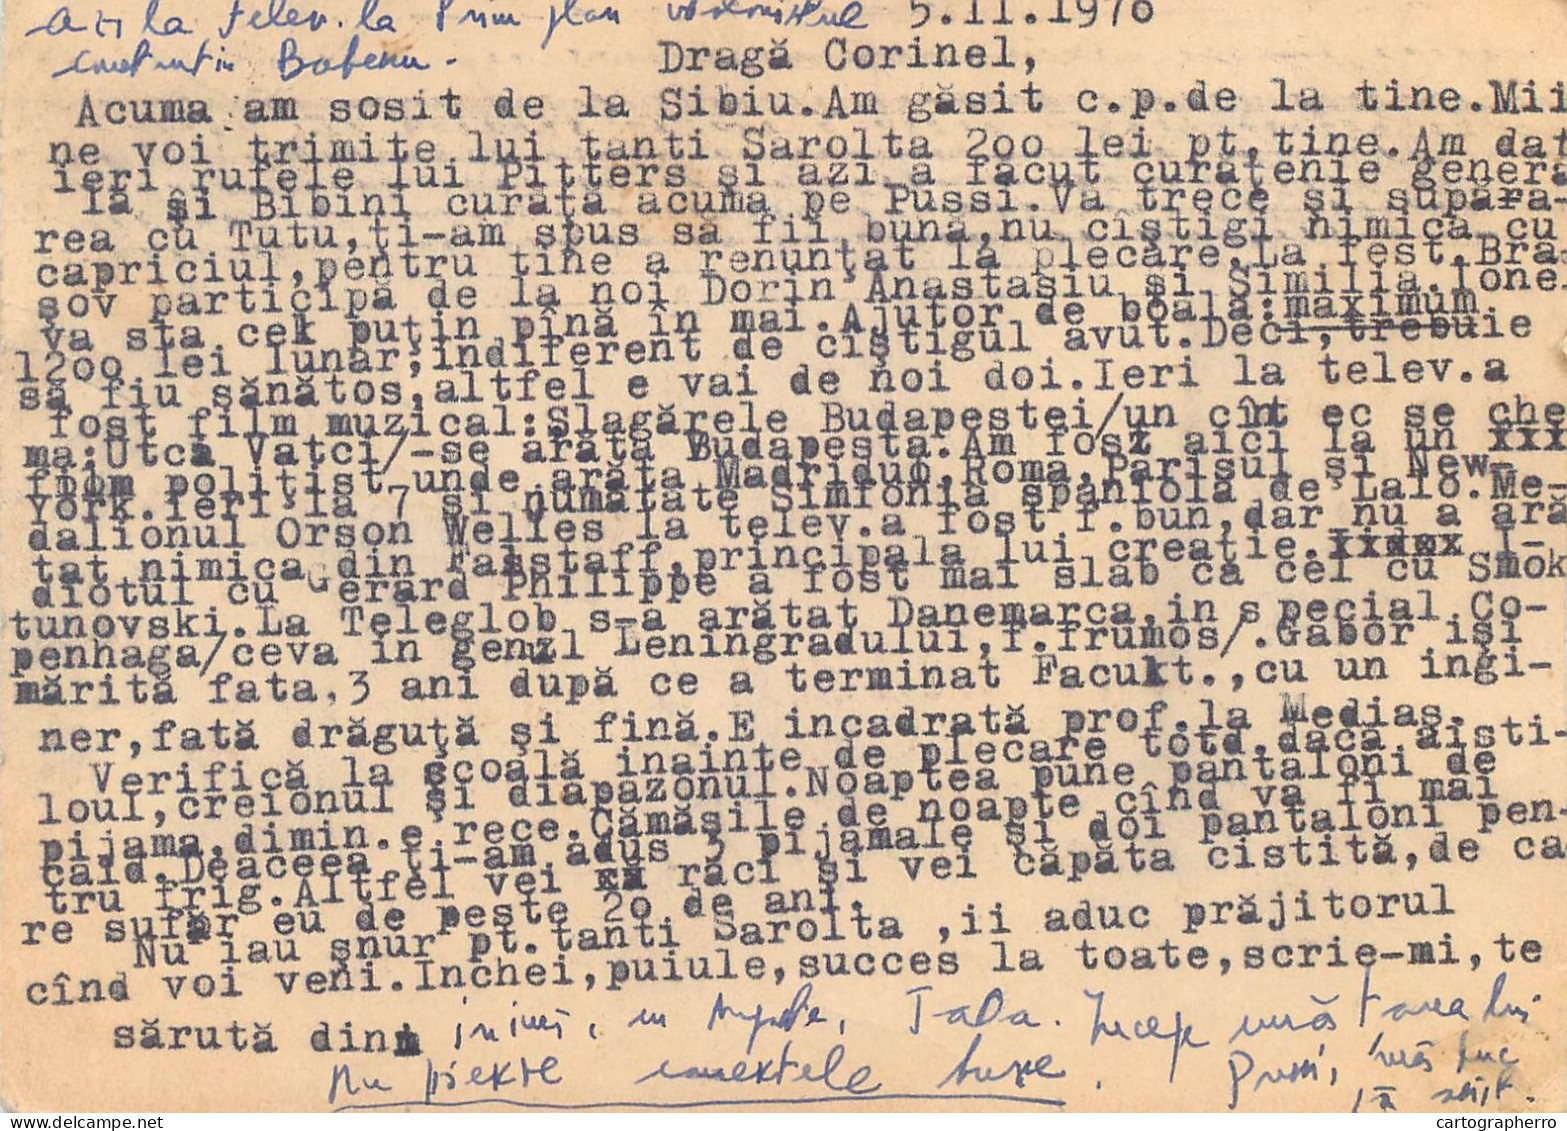 azi la telev. la Prim plan violonistul 5.II.1976
Constantin Bobescu.
Dragă Corinel,
Acuma am sosit de la Sibiu.Am găsit c.p.de la tine.Mii
ne voi trimite lui tanti Sarolta 2oo lei pt.tine.Am dat
ieri rufele lui Pitters și azi a făcut curățenie genera
la și Bibini curăță acuma pe Pussi.Va trece și supăra-
rea cu Tutu,ți-am spus să fii bună,nu cîștigi nimica cu
capriciul,pentru tine a renunțat la plecare.La fest.Bra-
șov participă de la noi Dorin Anastasiu și Similia.Ionel
va sta cek puțin pînă în mai.Ajutor de boală:maximum
12oo lei lunar,indiferent de cîștigul avut.Deci,trebuie
să fiu sănătos,altfel e vai de noi doi.Ieri la telev.a
fost film muzical:Șlagărele Budapestei/un cînt ec se che
ma:Utca Vatci/-se arăta Budapesta.Am fost aici la un xxx
film polițist unde arăta Madridul,Roma,Parisul și New-
york.Ieri la 7 și numătate Simfonia spaniolă de Lalo.Me-
dalionul Orson Welles la telev.a fost f.bun,dar nu a ară
tat nimica din Falstaff,principala lui creație.xxdex I-
diotul cu Gerard Philippe a fost mai slab ca cel cu Smok
tunovski.La Teleglob s-a arătat Danemarca,in special Co-
penhaga/ceva in genul Leningradului,f.frumos/.Gabor iși
mărită fata,3 ani după ce a terminat Facult.,cu un ingi-
ner,fată drăguță și fină.E incadrată prof.la Mediaș.
Verifică la școală inainte de plecare totd.dacă aisti-
loul,creionul și diapazonul.Noaptea pune pantaloni de
pijama,dimin.e rece.Cămășile de noapte cînd va fi mai
cald.Deaceea ți-am adus 3 pijamale și doi pantaloni pen-
tru frig.Altfel vei xx răci și vei căpăta cistită,de ca
re sufăr eu de peste 2o de ani.
Nu iau șnur pt.tanti Sarolta ,ii aduc prăjitorul
cînd voi veni.Inchei,puiule,succes la toate,scrie-mi,te
sărută din inimă, cu TaDa. Incepe lui
Nu pierde Pussi,
cartographerro